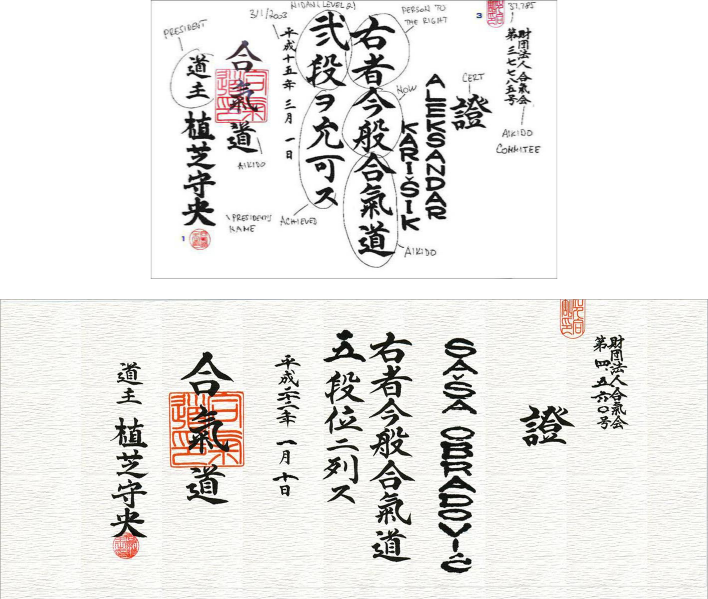 37.785
財団法人合氣会
第三七七八五号
AIKIDO
COMMITEE
3
CERT
證
ALEKSANDAR
KARIŠIK
PERSON TO
THE RIGHT
NOW
右者今般合氣道
AIKIDO
NIDAN (LEVEL 2)
弐段ヲ允可ス
ACHIEVED
3/1/2003
平成十五年三月一日
合氣道
AIKIDO
PRESIDENT
道主 植芝守央
PRESIDENTS
NAME
1
財団法人合氣会
第四、五六〇号
證
SAŠA OBRADOVIĆ
右者今般合氣道
五段位ニ列ス
平成 年 一月十日
合氣道
道主 植芝守央